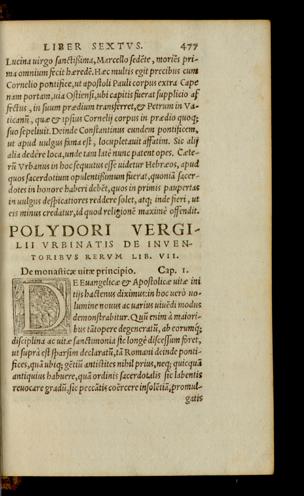 LIBER SEXTVS. 477
Lucina uirgo sanctissima, Marcello sedēte, moriēs pri-
ma omnium fecit hæredē. Hæc multis egit precibus cum
Cornelio pontifice, ut apostoli Pauli corpus extra Cape
nam portam, uia Ostiensi, ubi capitis fuerat supplicio af
fectus, in suum prædium transferret, & Petrum in Va-
ticanū, quæ & ipsius Cornelij corpus in prædio quoq;
suo sepeliuit. Deinde Constantinus eundem pontificem,
ut apud uulgus fama est, locupletauit affatim. Sic alij
alia dedere loca, unde tam latè nunc patent opes. Cæte-
rū Vrbanus in hoc sequutus esse uidetur Hebræos, apud
quos sacerdotium opulentissimum fuerat, quoniā sacer-
dotes in honore haberi debēt, quos in primis paupertas
in uulgus despicatiores reddere solet, atq; inde fieri, ut
eis minus credatur, id quod religionē maximè offendit.
POLYDORI VERGI-
LII VRBINATIS DE INVEN-
TORIBVS RERVM LIB. VII.
De monasticæ uitæ principio. Cap. I.
DE Euangelica & Apostolica uitæ ini
tijs hactenus diximus: in hoc uerò uo-
lumine nouas ac uarias uiuēdi modus
demonstrabitur. Quū enim à maiori-
bus tātopere degeneratū, ab eorumq;
disciplina ac uitæ sanctimonia sic longè discessum foret,
ut suprà est sparsim declaratū, tā Romani deinde ponti-
fices, quà ubiq; gētiū antistites nihil prius, neq; quicquā
antiquius habuere, quā ordinis sacerdotalis sic labentis
reuocare gradū, sic peccātis coërcere insolētiā, promul-
gatis